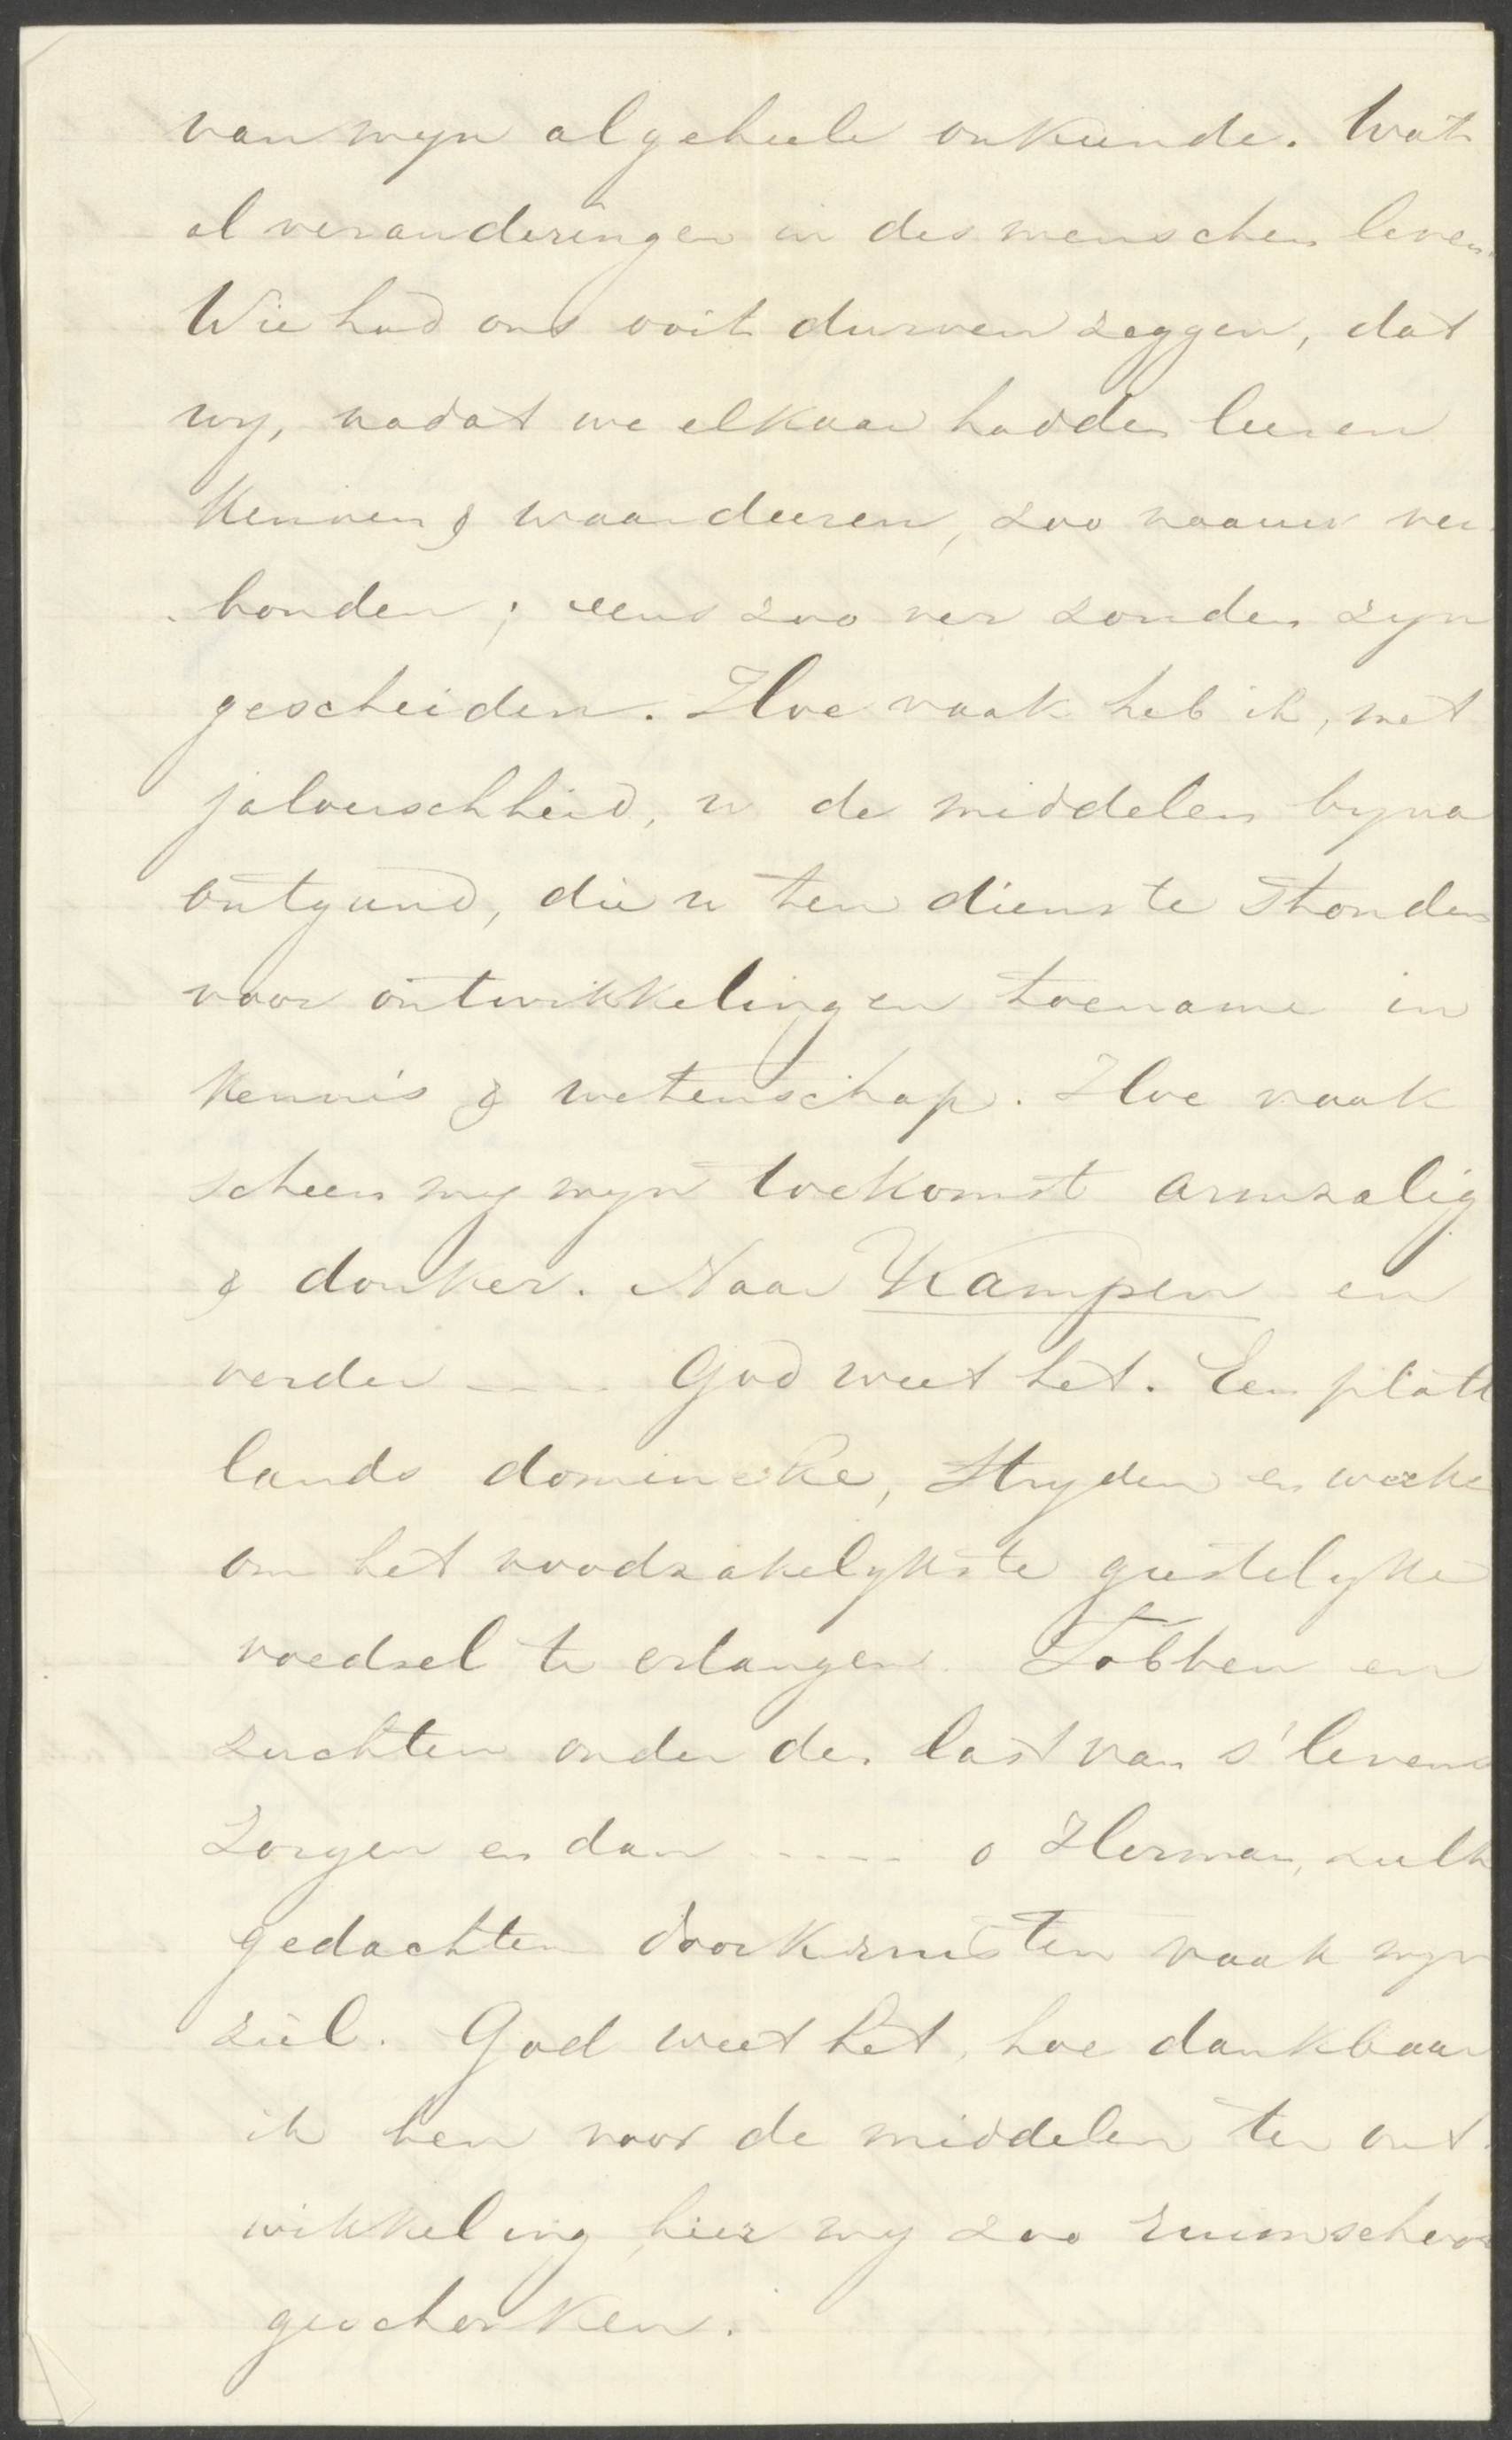 van myn algeheele onkunde. Wat
al veranderingen in des menschen leven.
Wie had ons ooit durven zeggen, dat
wy, nadat we elkaar hadden leeren
kennen & waardeeren, zoo naauw ver-
bonden; eens zoo ver zouden zyn
gescheiden. Hoe vaak heb ik, met
jaloerschheid, u de middelen byna
ontgund, die u ten dienste stonden
voor ontwikkeling en toename in
kennis & wetenschap. Hoe vaak
scheen my myn toekomst armzalig
& donker. Naar Kampen en
verder ---- God weet het. Een platte
lands domineeke, stryden en werken
om het noodzakelykste geestelyke
voedsel te erlangen. Tobben en
zuchten onder den last van s'levens
zorgen en dan ---- o Herman, zulke
gedachten doorkruisten vaak myn
ziel. God weet het, hoe dankbaar
ik ben voor de middelen ter ont-
wikkeling, hier my zoo ruimschoots
geschonken.